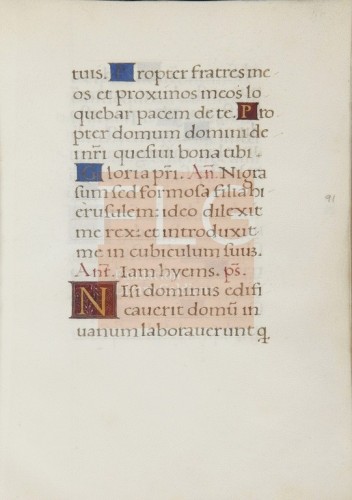 tuis. Propter fratres me
os et proximos meos lo
quebar pacem de te. Pro
pter domum domini de
i nr̄i quesiui bona tibi.
Gloria pr̄i. An̄. Nigra
sum sed formosa filia hi
erusalem: ideo dilexit
me rex: et introduxit
me in cubiculum suū.
Ant̄. Iam hyems. ps̄.
Nisi dominus edifi
cauerit domū in
uanum laborauerunt q
91
LG